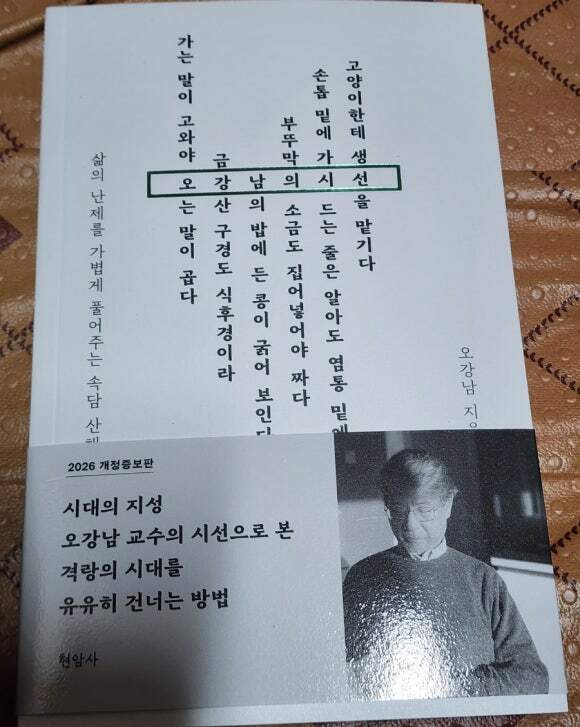 삶의 난제를 가볍게 풀어주는 속담
가는 말이 고와야 오는 말이 곱다
금강산 구경도 식후경이라
남의 밥에 든 콩이 굵어 보인다
부뚜막의 소금도 집어넣어야 짜다
손톱 밑에 가시 드는 줄은 알아도 염통 밑에
고양이한테 생선을 맡기다
오강남
2026 개정증보판
시대의 지성
오강남 교수의 시선으로 본
격랑의 시대를
유유히 건너는 방법
현암사